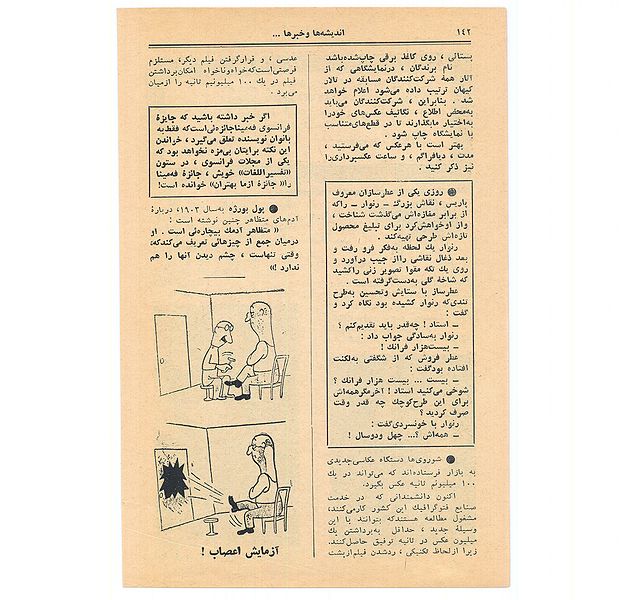 ۱۴۲
اندیشه‌ها و خبرها ...
پستالی ، روی کاغذ برقی چاپ‌شده‌باشد
نام برندگان ، درنمایشگاهی که از
آثار همهٔ شرکت‌کنندگان مسابقه در تالار
کیهان ترتیب داده می‌شود اعلام خواهد
شد . بنابراین ، شرکت‌کنندگان می‌باید
به‌محض اطلاع ، نگاتیف عکس‌های خودرا
به‌اختیار مابگذارند تا در قطع‌های متناسب
با نمایشگاه چاپ شود .
بهتر است با هرعکس که می‌فرستید ،
مدت ، دیافراگم ، و ساعت عکسبرداری‌را
نیز ذکر کنید .
روزی یکی از عطرسازان معروف
پاریس ، نقاش بزرگ – رنوار – راکه
از برابر مغازه‌اش می‌گذشت شناخت ،
واز اوخواهش‌کرد برای تبلیغ محصول
تازه‌اش طرحی تهیه‌کند .
رنوار یک لحظه به‌فکر فرو رفت و
بعد ذغال نقاشی رااز جیب درآورد و
روی یک تکه مقوا تصویر زنی راکشید
که شاخهٔ گلی به‌دست‌گرفته است .
عطرساز با ستایش وتحسین به‌طرح
تندی‌که رنوار کشیده بود نگاه کرد و
گفت :
– استاد ! چه‌قدر باید تقدیم‌کنم ؟
رنوار به‌سادگی جواب داد :
– بیست‌هزار فرانك !
عطر فروش که از شگفتی به‌لکنت
افتاده بودگفت :
– بیست ... بیست هزار فرانك ؟
شوخی می‌کنید استاد ! آخرمگرهمه‌اش
برای این طرح‌کوچك چه قدر وقت
صرف کردید ؟
رنوار با خونسردی‌گفت :
– همه‌اش ؟... چهل ودوسال !
شوروی‌ها دستگاه عکاسی‌جدیدی
به بازار فرستاده‌اند که می‌تواند در یك
۱۰۰ میلیونیم ثانیه عکس بگیرد.
اکنون دانشمندانی که در خدمت
صنایع فتوگرافیك این کشور کارمی‌کنند،
مشغول مطالعه هستندکه بتوانند با این
وسیلهٔ جدید ، حداقل به‌برداشتن یك
میلیون عکس در ثانیه توفیق حاصل‌کنند.
زیرا ازلحاظ تکنیکی ، ردشدن فیلم ازپشت
عدسی ، و قرارگرفتن فیلم دیگر، مستلزم
فرصتی است‌که‌خواه‌وناخواه امکان‌برداشتن
فیلم در یك ۱۰۰ میلیونیم ثانیه را ازمیان
می‌برد .
اگر خبر داشته باشید که جایزهٔ
فرانسوی فه‌میناجایزه‌ئی‌است‌که فقط‌به
بانوان نویسنده تعلق می‌گیرد ، خراندن
این نکته برایتان بی‌مزه نخواهد بود که
یکی از مجلات فرانسوی ، در ستون
«تفسیراللغات» خویش ، جائزهٔ فه‌مینا
را« جائزهٔ ازما بهتران» خوانده است!
پول بورژه به‌سال ۱۹۰۳، دربارهٔ
آدم‌های متظاهر چنین نوشته است :
« متظاهر آدمك بیچاره‌ئی است . او
درمیان جمع از چیزهائی تعریف می‌کندکه،
وقتی تنهاست ، چشم دیدن آنها را هم
ندارد !»
آزمایش اعصاب !